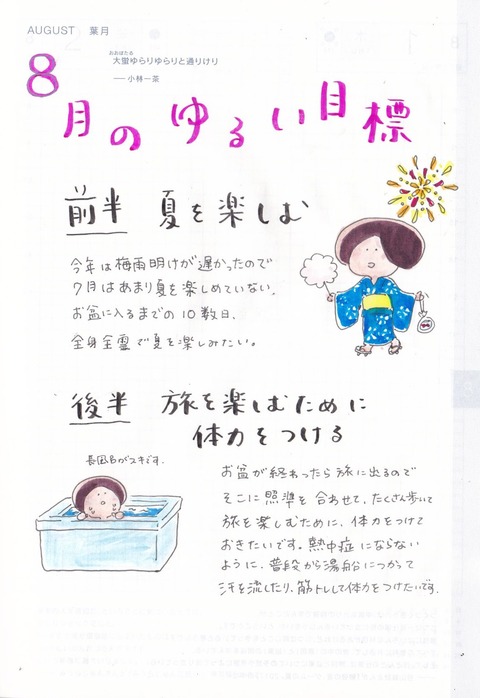 AUGUST 葉月
おおぼたる
大蛍ゆらりゆらりと通りけり
── 小林一茶
8月のゆるい目標
前半 夏を楽しむ
今年は梅雨明けが遅かったので
7月はあまり夏を楽しめていない。
お盆に入るまでの10数日、
全身全霊で夏を楽しみたい。
後半 旅を楽しむために
体力をつける
長風呂がスキです。
お盆が終わったら旅に出るので
そこに照準を合わせて、たくさん歩いて
旅を楽しむために、体力をつけて
おきたいです。熱中症にならない
ように、普段から湯船につかって
汗を流したり、筋トレして体力をつけたいです。